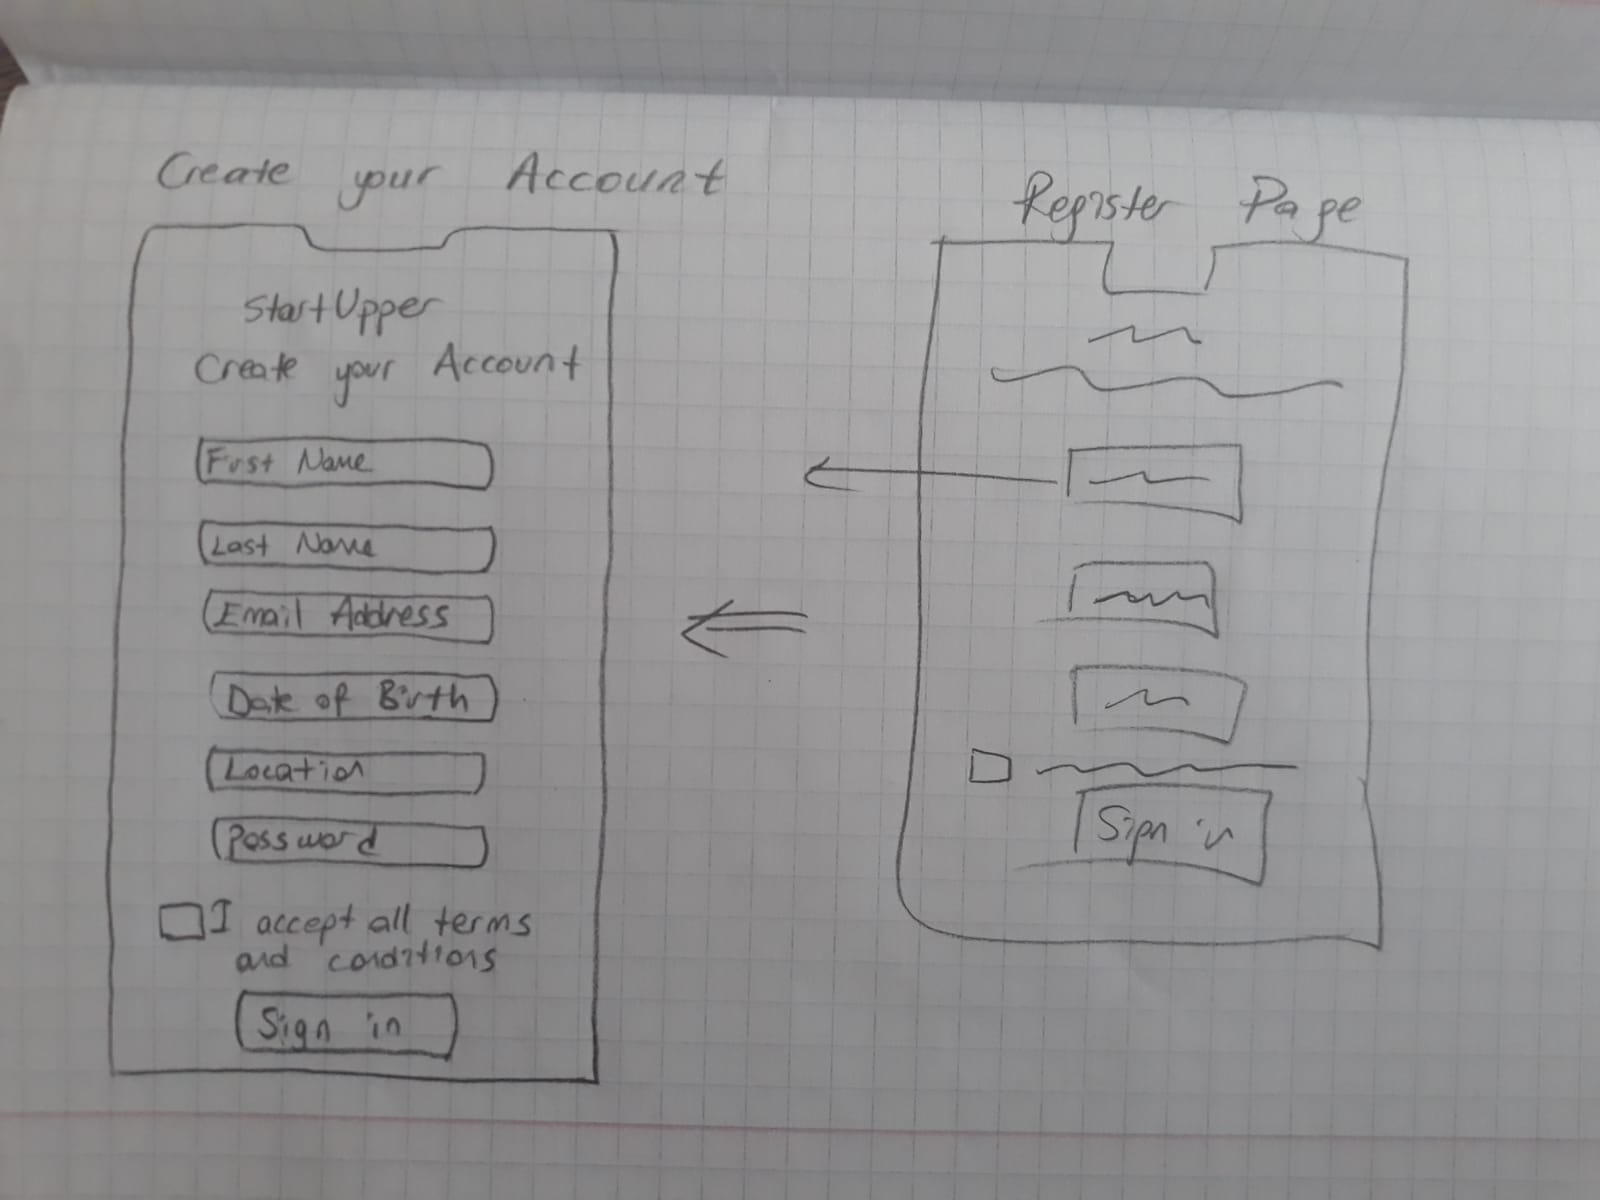 Create your Account
StartUpper
Create your Account
First Name
Last Name
Email Address
Date of Birth
Location
Password
I accept all terms
and conditions
Sign in
Register Page
Sign in